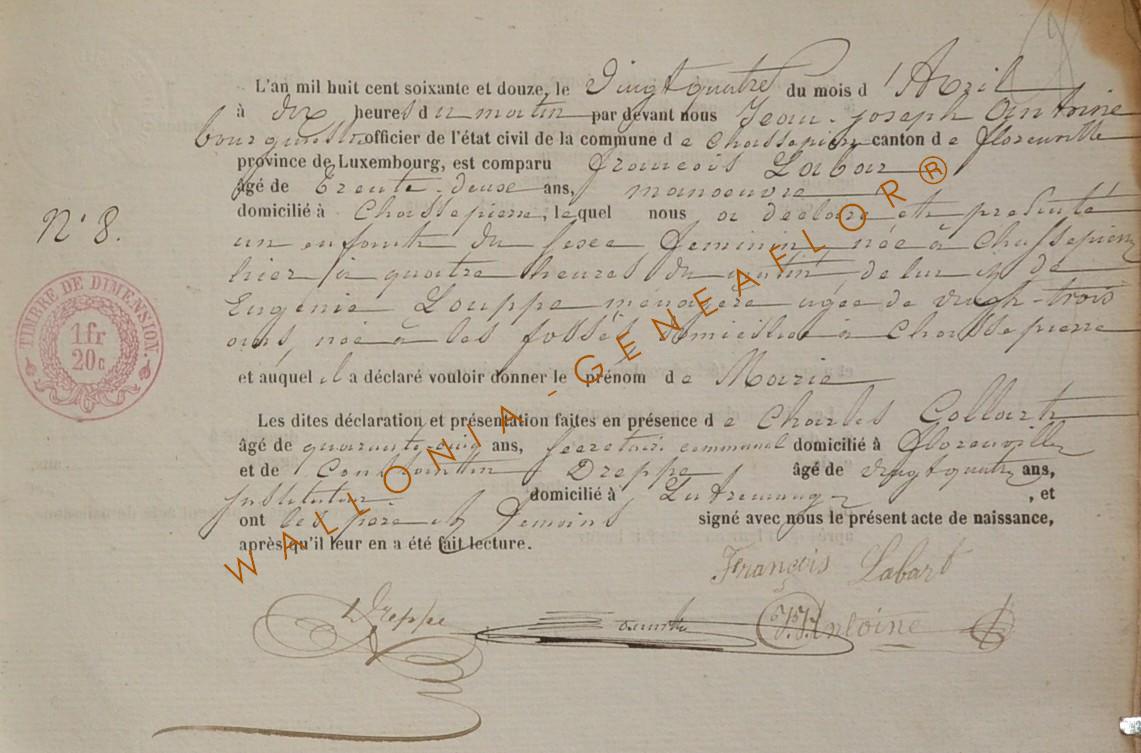 L'an mil huit cent soixante et douze, le vingt quatre du mois d'Avril
à dix heures du matin par devant nous Jean-joseph Antoine
bourgmestre officier de l'état civil de la commune de Chassepierre canton de florenville
province de Luxembourg, est comparu françois Labar
âgé de trente-deux ans, manoeuvre
domicilié à Chassepierre, lequel nous a déclaré et présenté
N° 8.
un enfant du sexe féminin, née à Chassepierre
hier à quatre heures du matin, de lui et de
Eugénie Louppe ménagère agée de vingt-trois
ans, née à les fossés domiciliée à Chassepierre
TIMBRE DE DIMENSION.
1 fr
20c
et auquel il a déclaré vouloir donner le prénom de Marie
Les dites déclaration et présentation faites en présence de Charles Collart
âgé de quarante-cinq ans, secrétaire communal domicilié à florenville
et de Constantin Dreppe, âgé de vingt quatre ans,
instituteur domicilié à , et
ont les père et témoins signé avec nous le présent acte de naissance,
après qu'il leur en a été fait lecture.
François Labart
Dreppe J.J. Antoine
WALLONIA-GENEAFLOR®